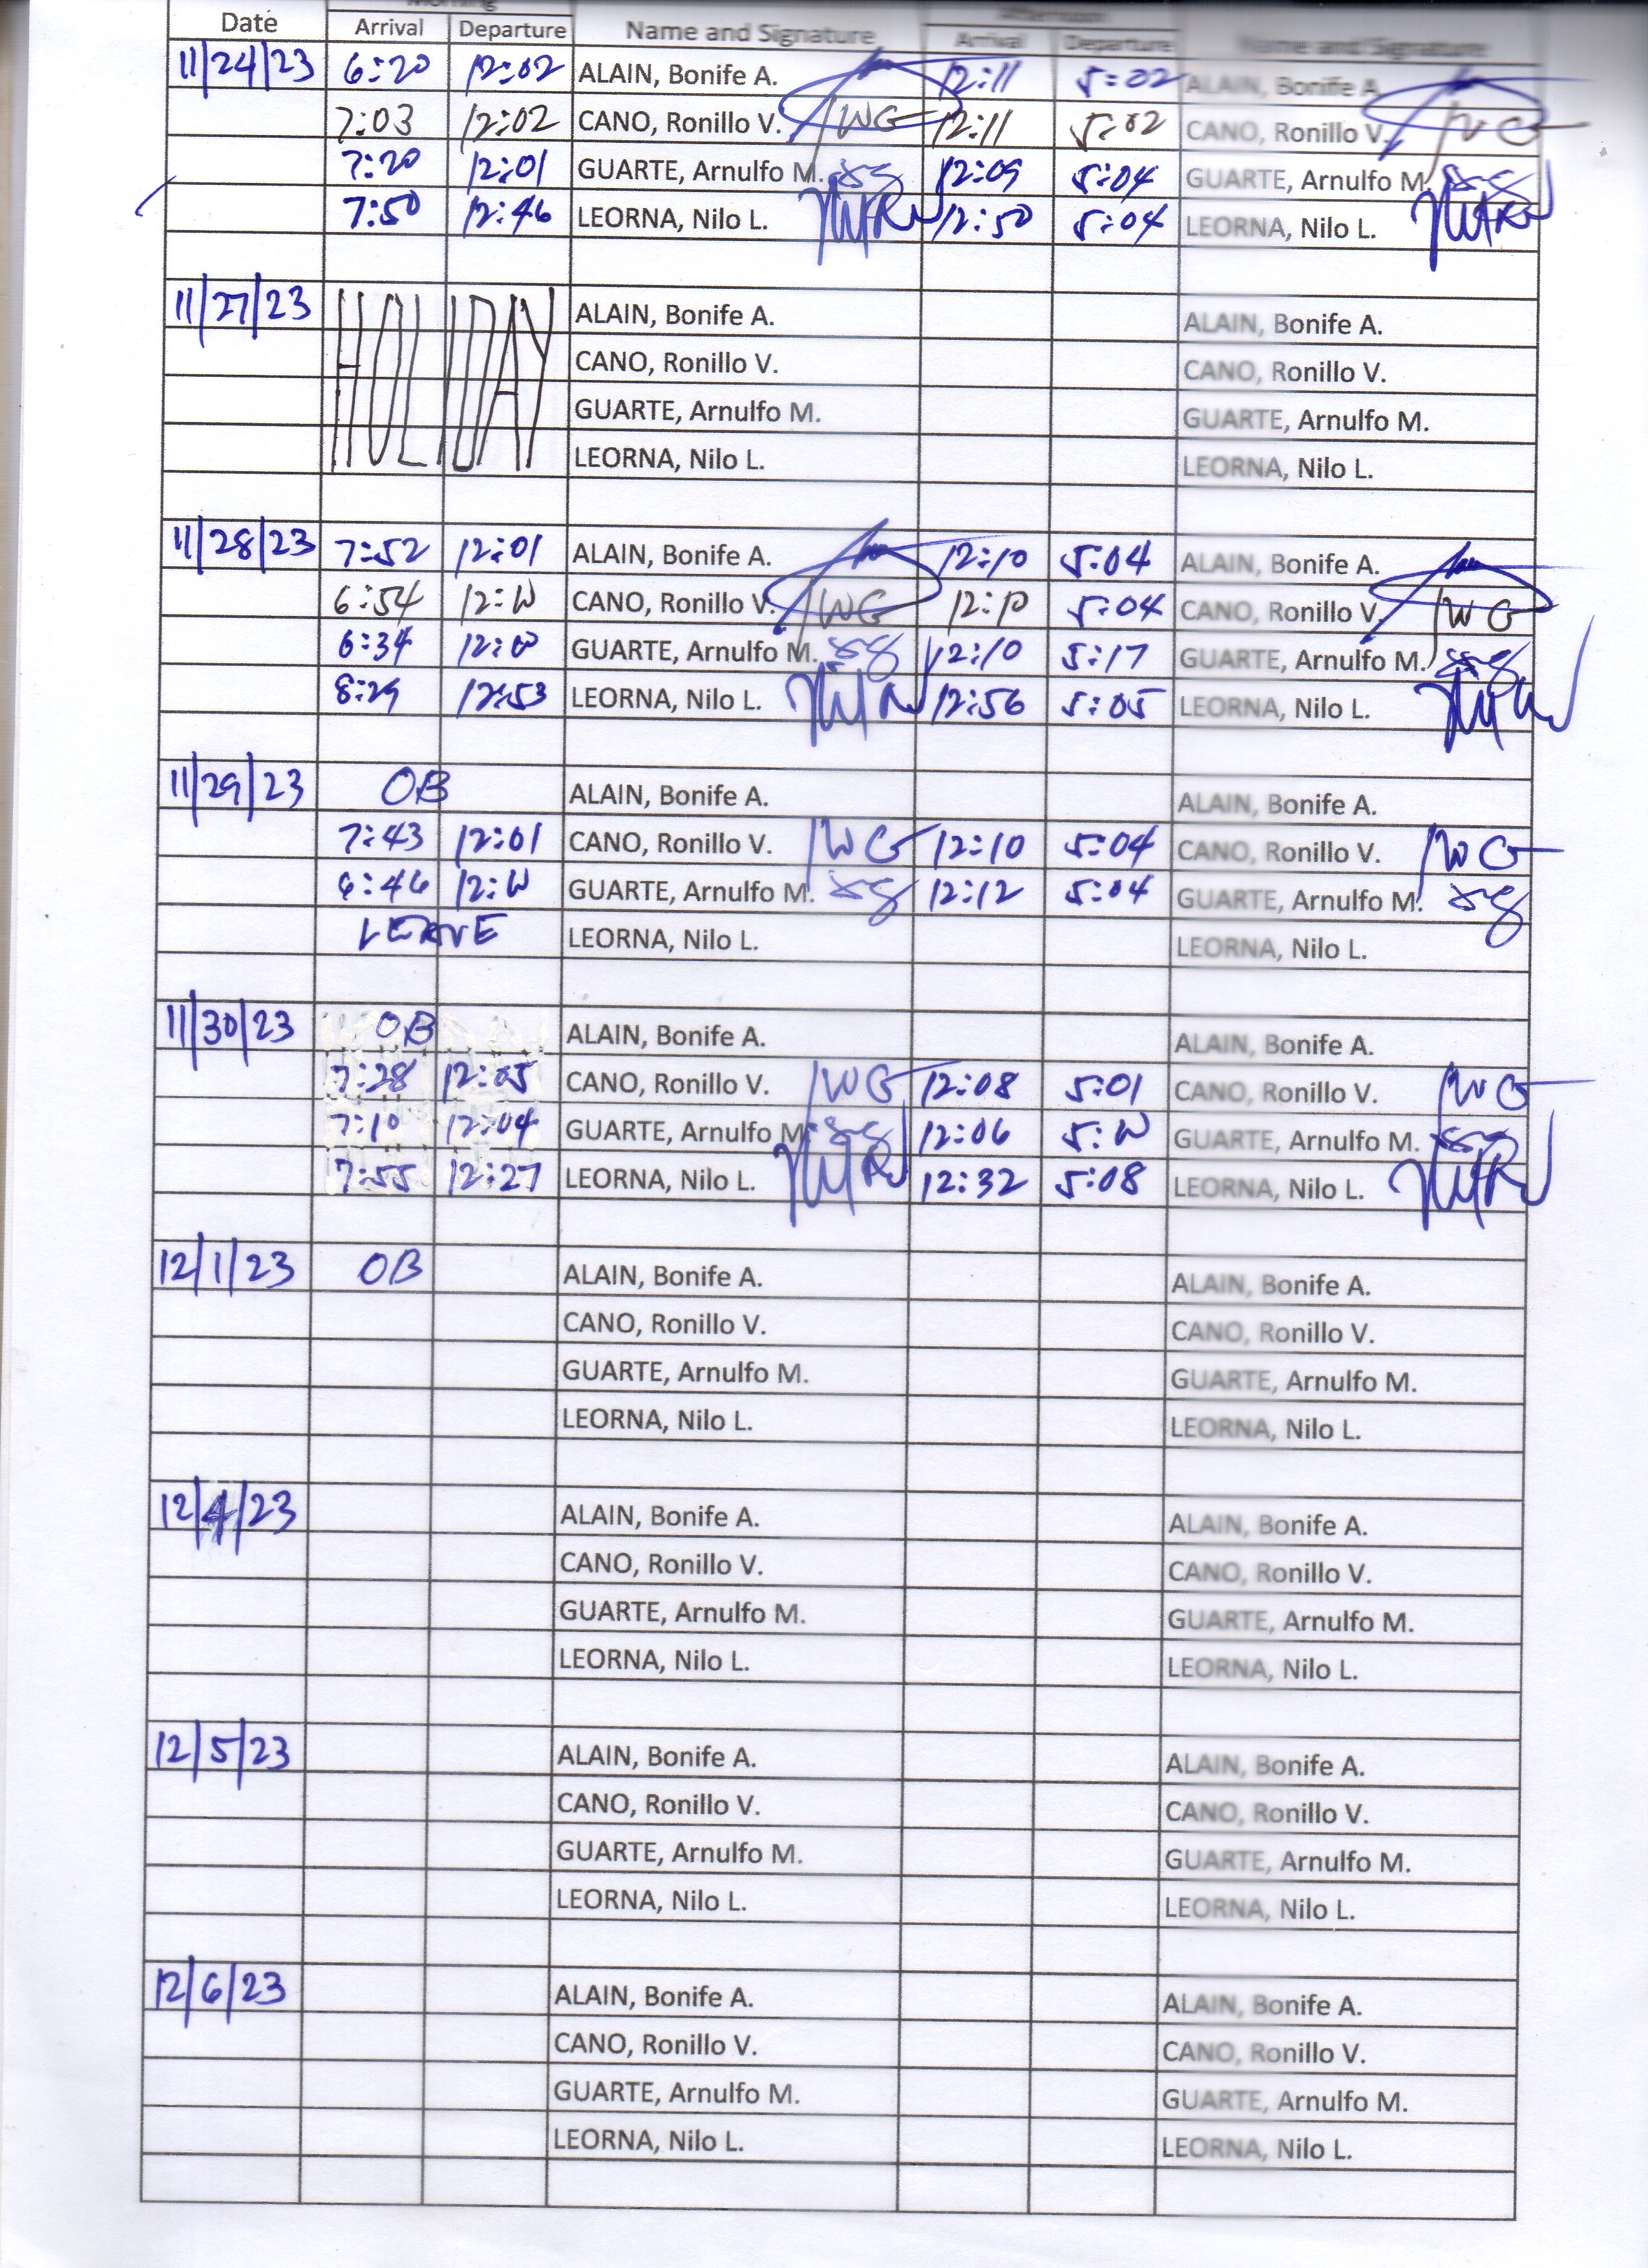 Morning Afternoon
Date Arrival Departure Name and Signature Arrival Departure Name and Signature
11/24/23 6:20 12:02 ALAIN, Bonife A. 12:11 5:02 ALAIN, Bonife A.
7:03 12:02 CANO, Ronillo V. 12:11 5:02 CANO, Ronillo V.
7:20 12:01 GUARTE, Arnulfo M. 12:09 5:04 GUARTE, Arnulfo M.
7:50 12:46 LEORNA, Nilo L. 12:50 5:04 LEORNA, Nilo L.
11/27/23 HOLIDAY ALAIN, Bonife A. ALAIN, Bonife A.
CANO, Ronillo V. CANO, Ronillo V.
GUARTE, Arnulfo M. GUARTE, Arnulfo M.
LEORNA, Nilo L. LEORNA, Nilo L.
11/28/23 7:52 12:01 ALAIN, Bonife A. 12:10 5:04 ALAIN, Bonife A.
6:54 CANO, Ronillo V. 12:10 5:04 CANO, Ronillo V.
6:34 GUARTE, Arnulfo M. 12:10 5:17 GUARTE, Arnulfo M.
8:29 12:53 LEORNA, Nilo L. 12:56 5:05 LEORNA, Nilo L.
11/29/23 OB ALAIN, Bonife A. ALAIN, Bonife A.
7:43 12:01 CANO, Ronillo V. 12:10 5:04 CANO, Ronillo V.
6:46 GUARTE, Arnulfo M. 12:12 5:04 GUARTE, Arnulfo M.
LEAVE LEORNA, Nilo L. LEORNA, Nilo L.
11/30/23 OB ALAIN, Bonife A. ALAIN, Bonife A.
7:28 12:05 CANO, Ronillo V. 12:08 5:01 CANO, Ronillo V.
7:10 12:04 GUARTE, Arnulfo M. 12:06 GUARTE, Arnulfo M.
7:55 12:27 LEORNA, Nilo L. 12:32 5:08 LEORNA, Nilo L.
12/1/23 OB ALAIN, Bonife A. ALAIN, Bonife A.
CANO, Ronillo V. CANO, Ronillo V.
GUARTE, Arnulfo M. GUARTE, Arnulfo M.
LEORNA, Nilo L. LEORNA, Nilo L.
12/4/23 ALAIN, Bonife A. ALAIN, Bonife A.
CANO, Ronillo V. CANO, Ronillo V.
GUARTE, Arnulfo M. GUARTE, Arnulfo M.
LEORNA, Nilo L. LEORNA, Nilo L.
12/5/23 ALAIN, Bonife A. ALAIN, Bonife A.
CANO, Ronillo V. CANO, Ronillo V.
GUARTE, Arnulfo M. GUARTE, Arnulfo M.
LEORNA, Nilo L. LEORNA, Nilo L.
12/6/23 ALAIN, Bonife A. ALAIN, Bonife A.
CANO, Ronillo V. CANO, Ronillo V.
GUARTE, Arnulfo M. GUARTE, Arnulfo M.
LEORNA, Nilo L. LEORNA, Nilo L.